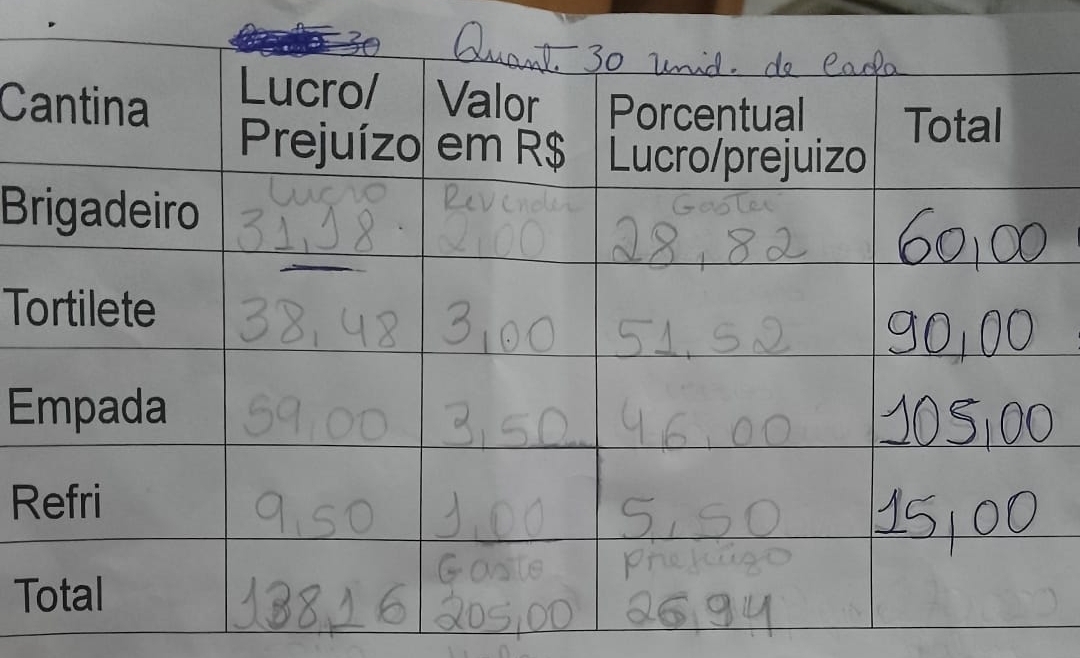 30 Quant. 30 unid. de cada
Cantina Lucro/ Prejuízo Valor em R$ Porcentual Lucro/prejuizo Total
Lucro Revender Gastei
Brigadeiro 31,18 2,00 28,82 60,00
Tortilete 38,48 3,00 51,52 90,00
Empada 59,00 3,50 46,00 105,00
Refri 9,50 1,00 5,50 15,00
Gaste
Total 138,16 205,00 26,94